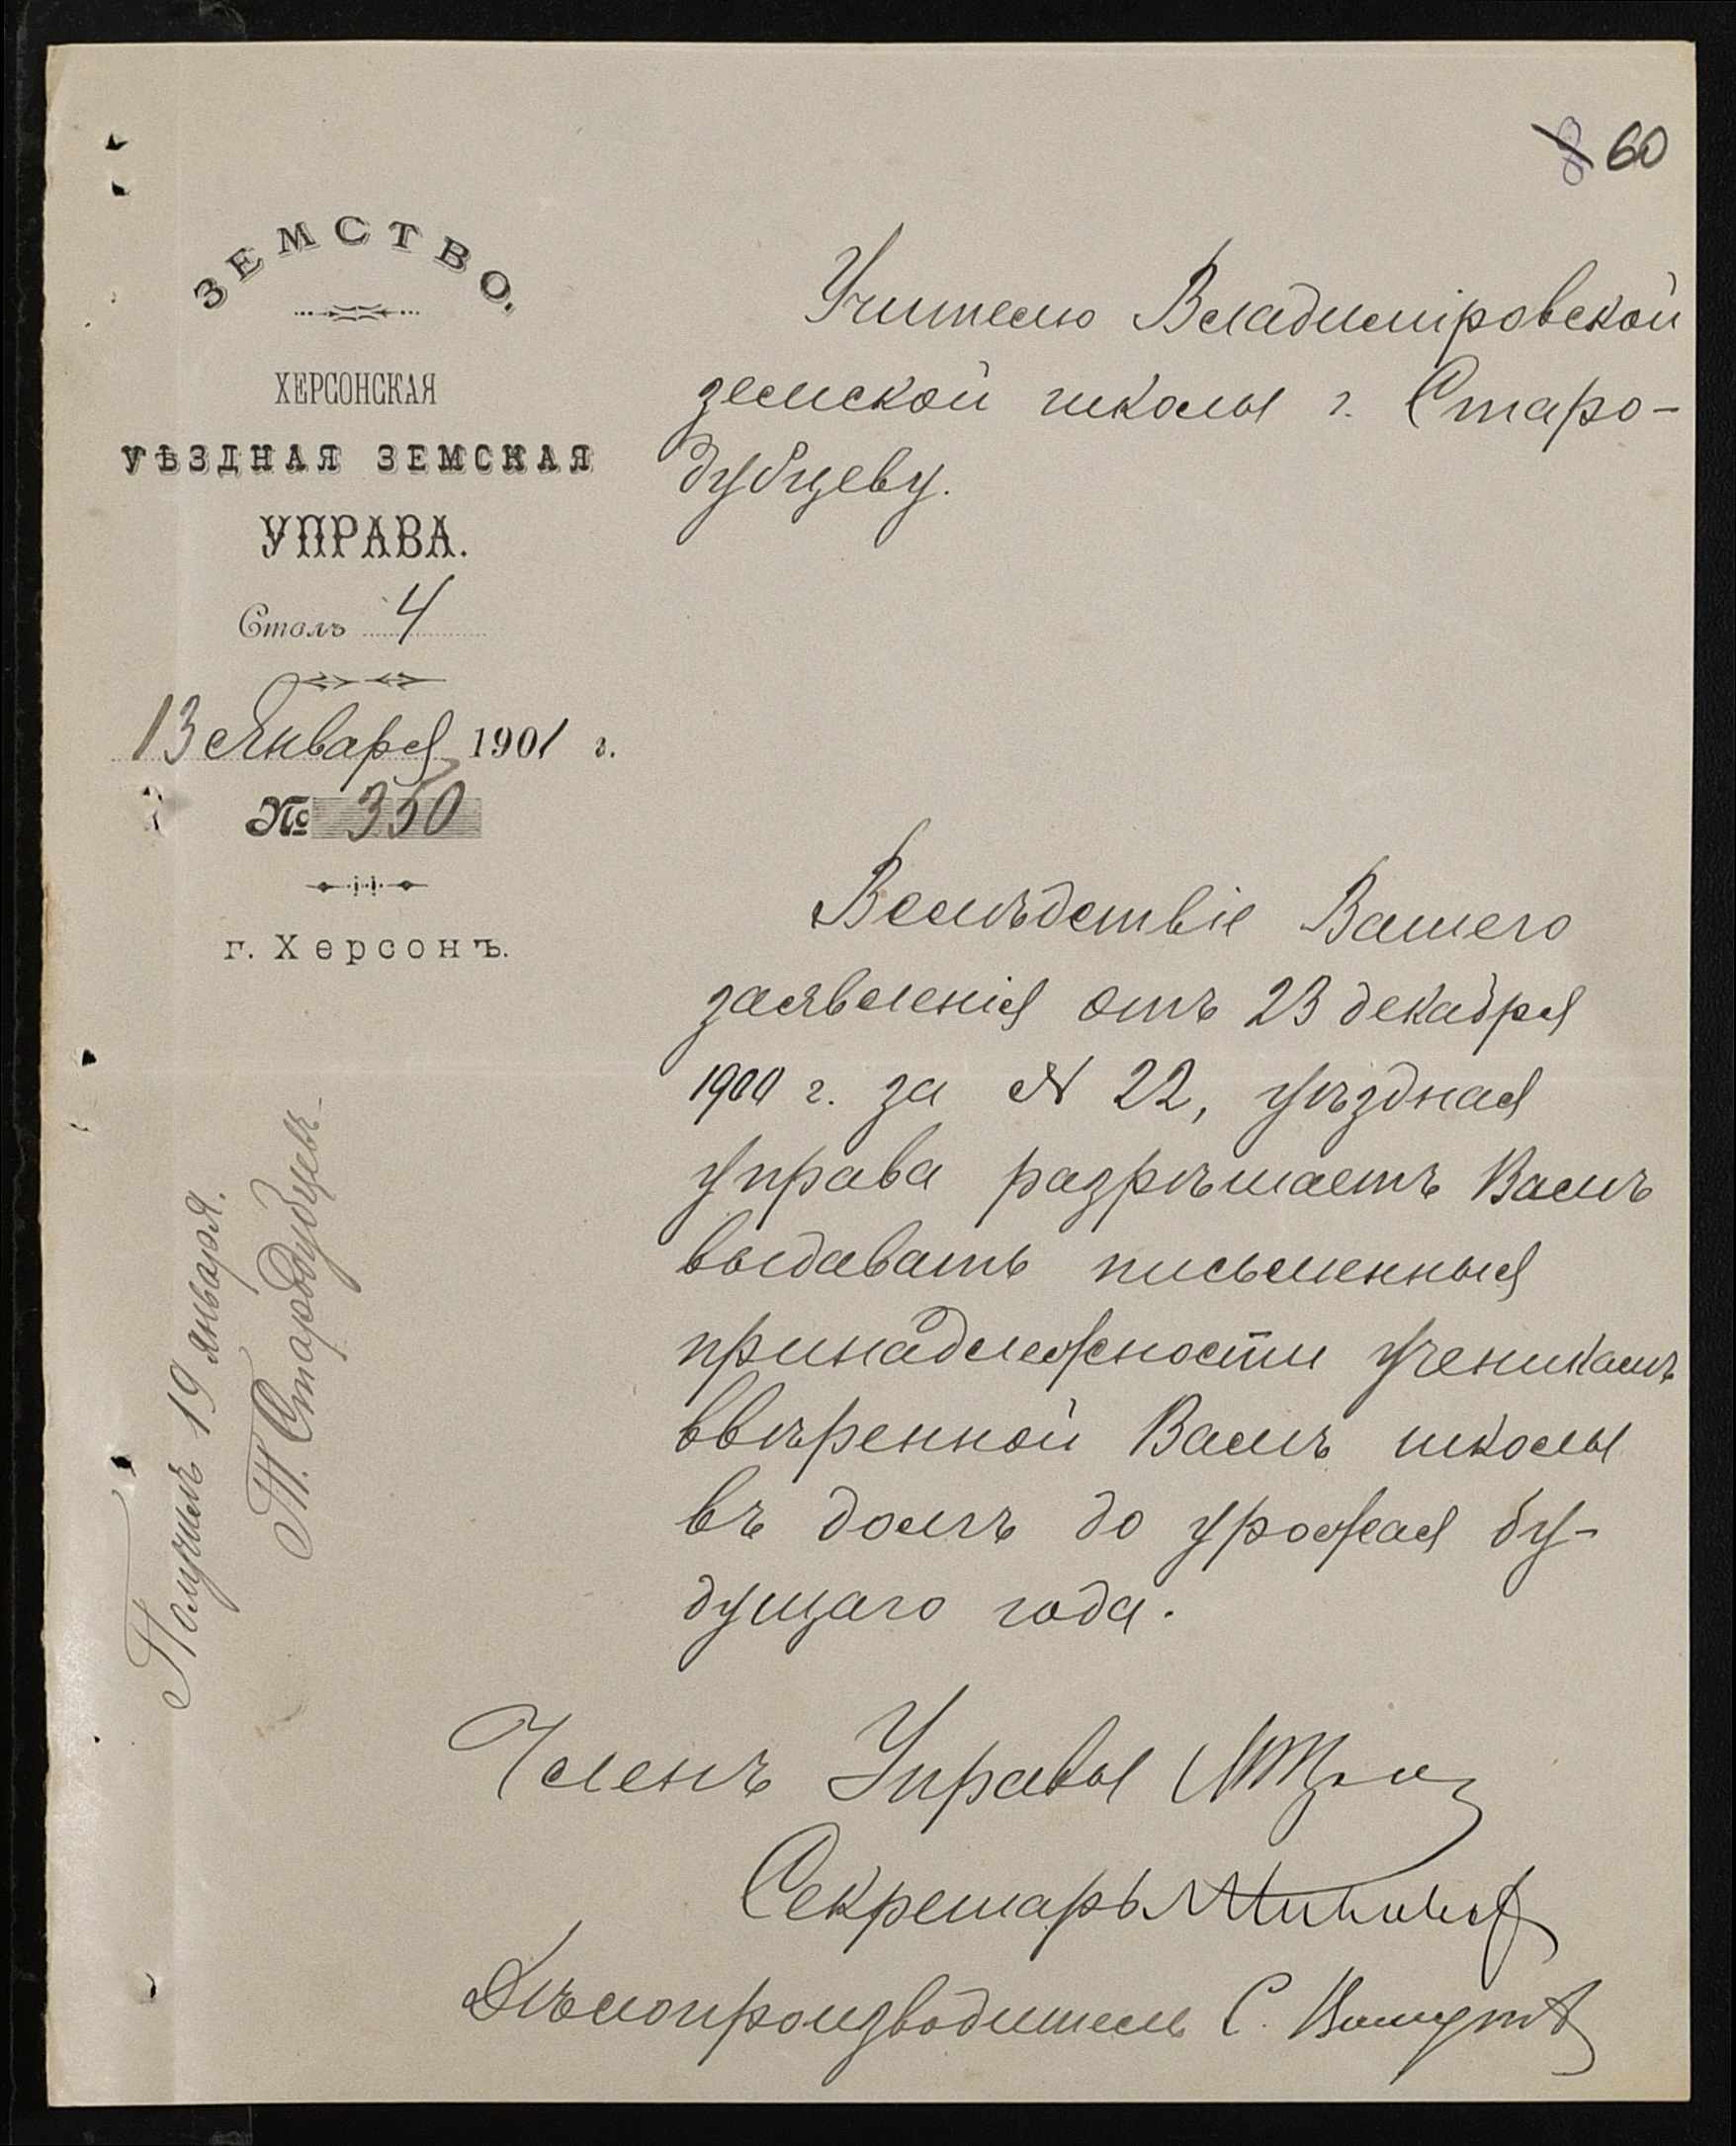 60
ЗЕМСТВО.
ХЕРСОНСКАЯ
УѢЗДНАЯ ЗЕМСКАЯ
УПРАВА.
Столъ 4
13 Января 1901 г.
№ 350
г. Херсонъ.
Учителю Владимiровской
земской школы г. Старо-
дубцеву.
Вслѣдствiе Вашего
заявленiя отъ 23 декабря
1900 г. за N 22, уѣздная
управа разрѣшаетъ Вамъ
выдавать письменныя
принадлежности ученикамъ
ввѣренной Вамъ школы
въ домъ до урожая бу-
дущаго года.
Членъ Управы
Секретарь
Дѣлопроизводитель С.
Получилъ 19 января.
Т. Стародубцевъ